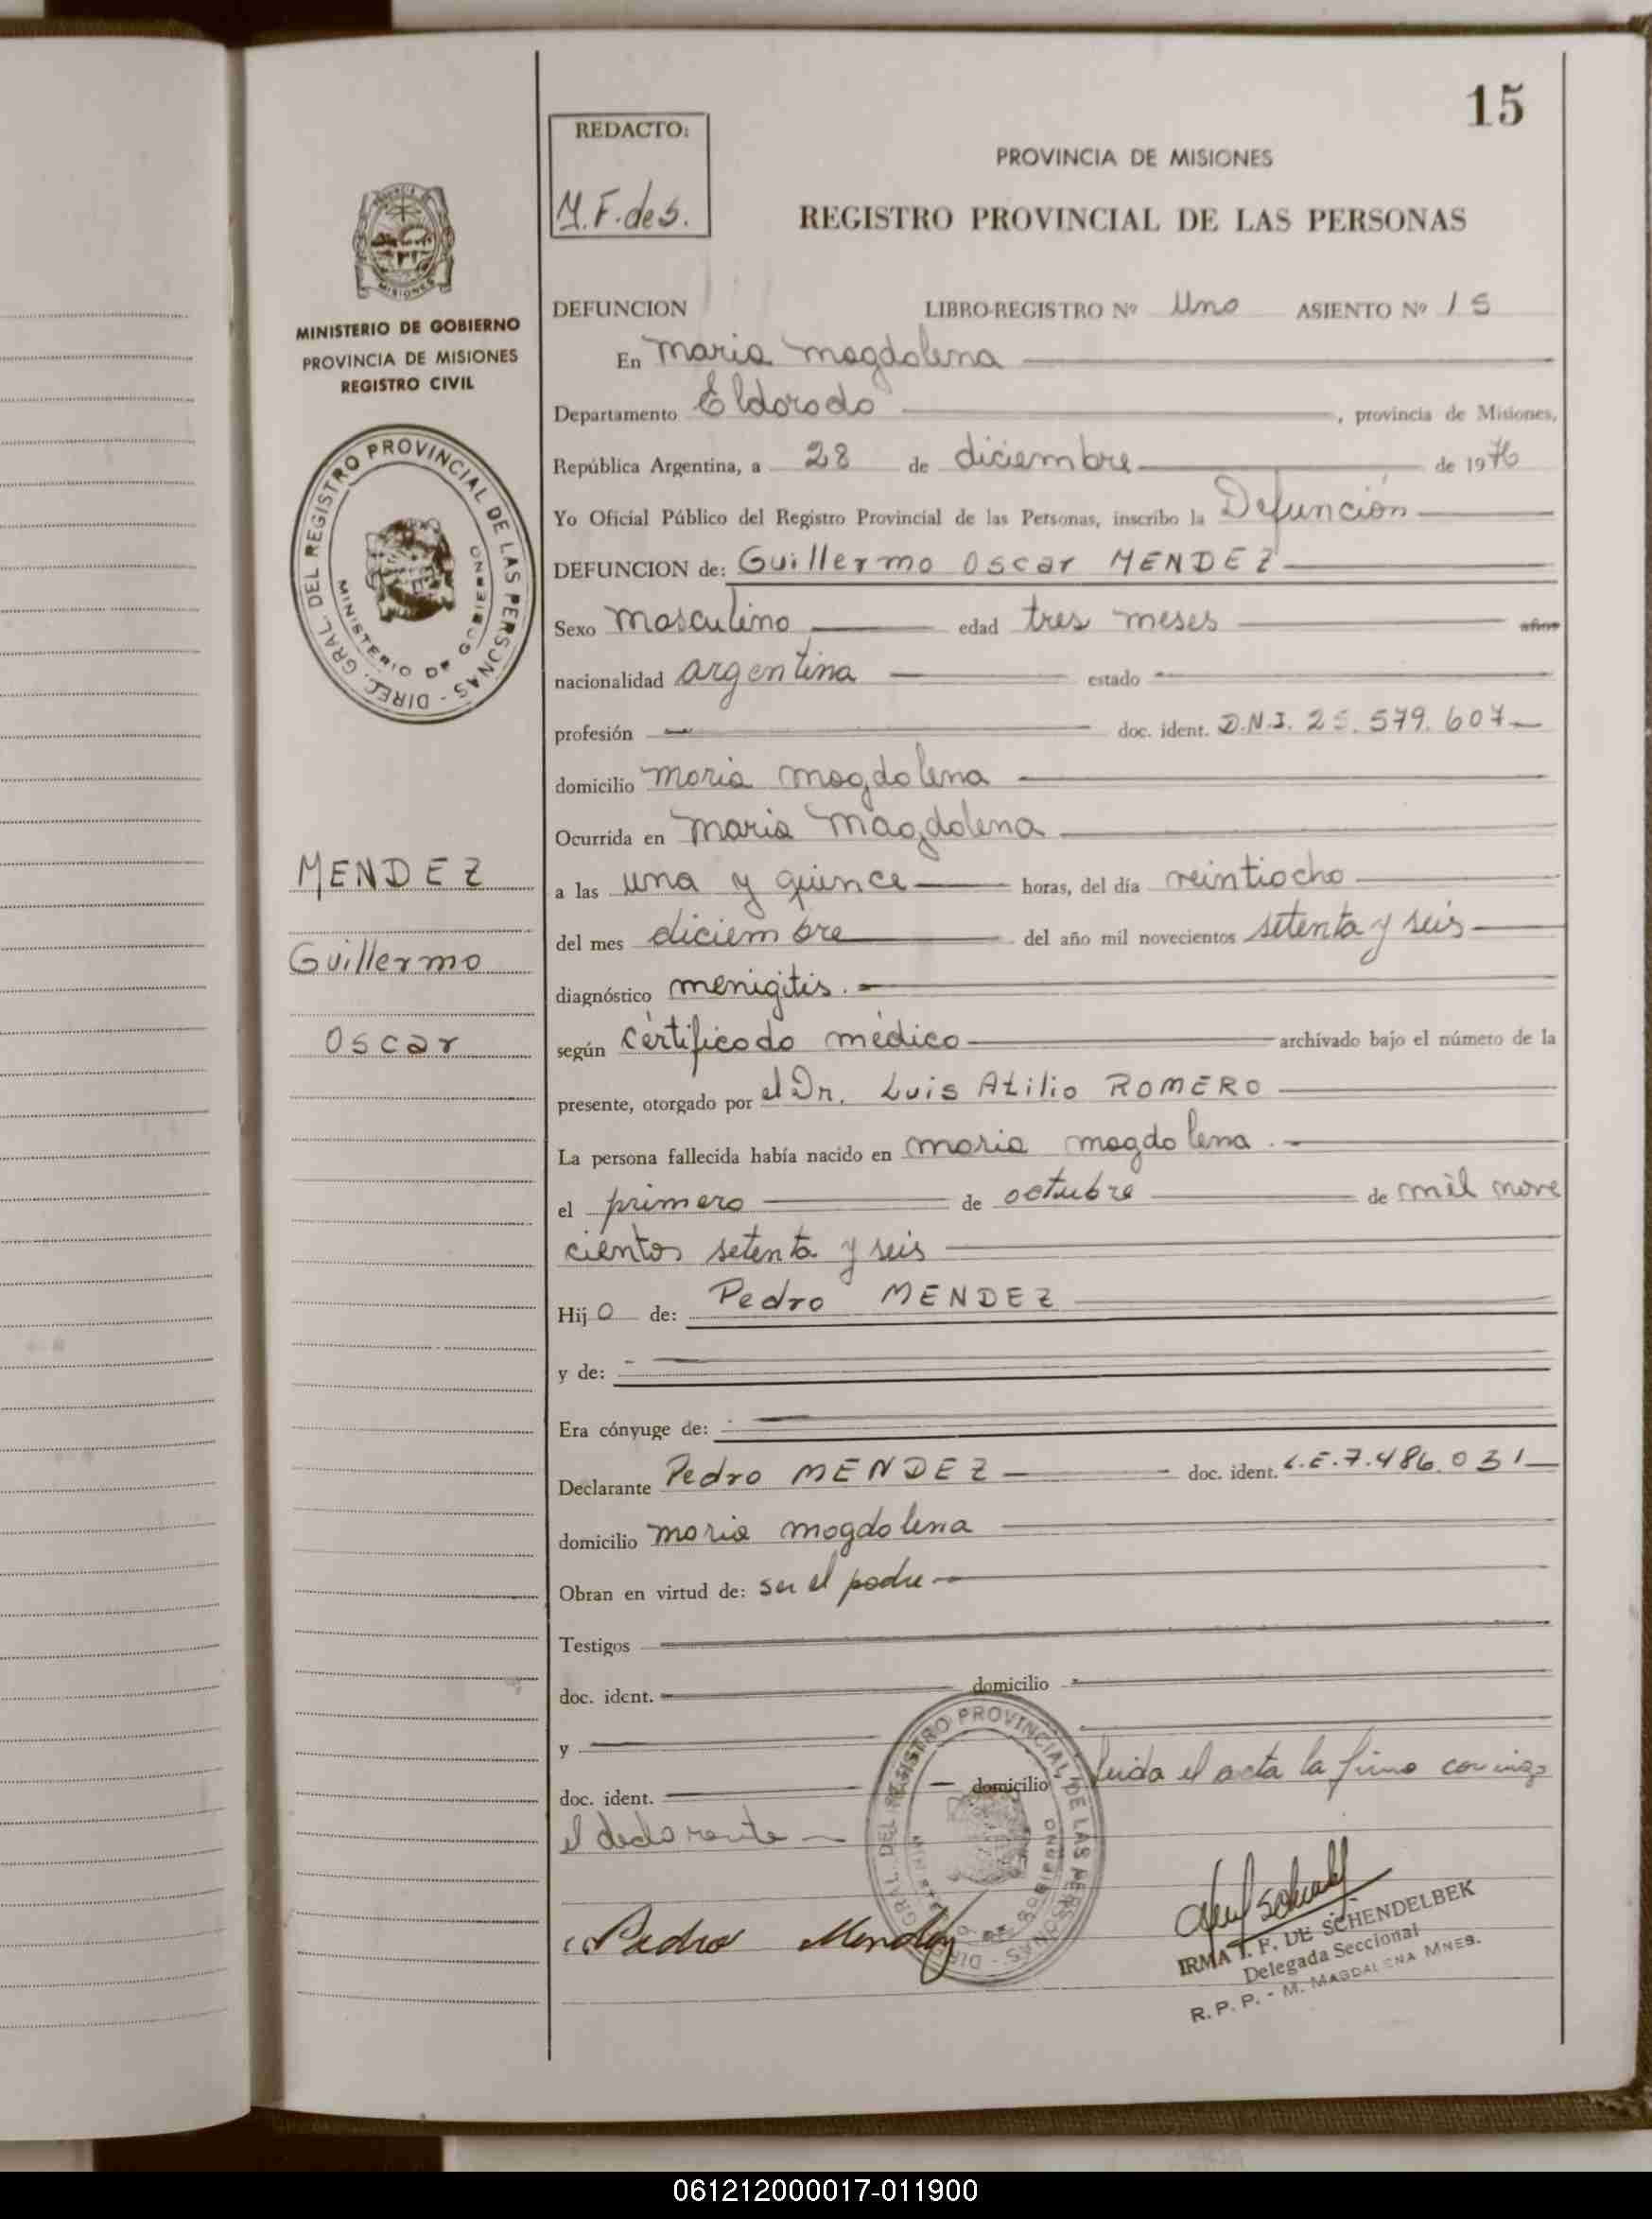 15
REDACTO:
M.F. de S.
PROVINCIA DE MISIONES
REGISTRO PROVINCIAL DE LAS PERSONAS
MISIONES
MINISTERIO DE GOBIERNO
PROVINCIA DE MISIONES
REGISTRO CIVIL
DIREC. GRAL. DEL REGISTRO PROVINCIAL DE LAS PERSONAS -
MINISTERIO DE GOBIERNO
MENDEZ
Guillermo
Oscar
DEFUNCION LIBRO-REGISTRO Nº Uno ASIENTO Nº 15
En Maria Magdalena
Departamento Eldorado , provincia de Misiones,
República Argentina, a 28 de diciembre de 1976
Yo Oficial Público del Registro Provincial de las Personas, inscribo la Defunción
DEFUNCION de: Guillermo Oscar MENDEZ
Sexo masculino edad tres meses años
nacionalidad argentina estado
profesión doc. ident. D.N.I. 25.579.607
domicilio Maria Magdalena
Ocurrida en Maria Magdalena
a las una y quince horas, del día veintiocho
del mes diciembre del año mil novecientos setenta y seis
diagnóstico menigitis.
según certificado médico archivado bajo el número de la
presente, otorgado por el Dr. Luis Atilio ROMERO
La persona fallecida había nacido en Maria Magdalena.
el primero de octubre de mil nove
cientos setenta y seis
Hijo de: Pedro MENDEZ
y de:
Era cónyuge de:
Declarante Pedro MENDEZ doc. ident. L.E.7.486.031
domicilio Maria Magdalena
Obran en virtud de: ser el padre
Testigos
doc. ident. domicilio
y
doc. ident. domicilio Leida el acta la firma conmigo
el declarante
DIREC. GRAL. DEL REGISTRO PROVINCIAL DE LAS PERSONAS -
MINISTERIO DE GOBIERNO
Pedro Mendez
IRMA T. F. DE SCHENDELBEK
Delegada Seccional
R. P. P. - M. MAGDALENA MNES.
061212000017-011900